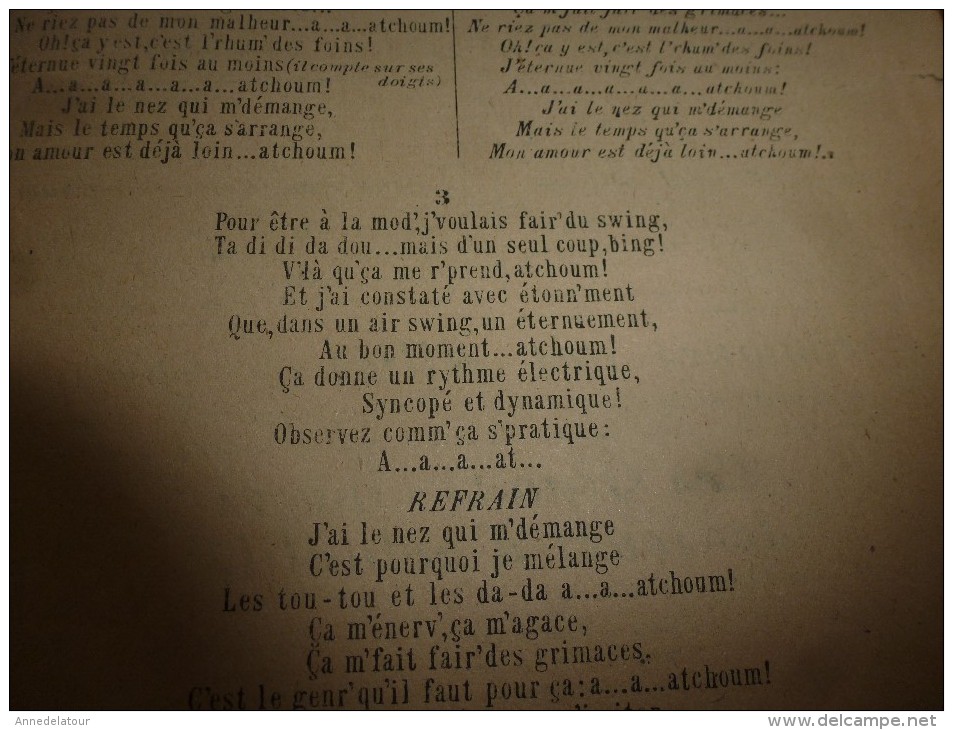 Ne riez pas de mon malheur...a...a...atchoum!
Oh! ça y est, c'est l'rhum' des foins!
éternue vingt fois au moins (il compte sur ses
doigts)
A...a...a...a...a...atchoum!
J'ai le nez qui m'démange,
Mais le temps qu'ça s'arrange,
amour est déjà loin...atchoum!
Ça m'fait fair' des grimaces...
Ne riez pas de mon malheur...a...a...atchoum!
Oh! ça y est, c'est l'rhum' des foins!
J'éternue vingt fois au moins:
A...a...a...a...a...atchoum!
J'ai le nez qui m'démange
Mais le temps qu'ça s'arrange,
Mon amour est déjà loin...atchoum!
3
Pour être à la mod', j'voulais fair' du swing,
Ta di di da dou...mais d'un seul coup, bing!
V'là qu'ça me r'prend, atchoum!
Et j'ai constaté avec étonn'ment
Que, dans un air swing, un éternuement,
Au bon moment...atchoum!
Ça donne un rythme électrique,
Syncopé et dynamique!
Observez comm' ça s'pratique:
A...a...a...at...
REFRAIN
J'ai le nez qui m'démange
C'est pourquoi je mélange
Les tou-tou et les da-da a...a...atchoum!
Ça m'énerv', ça m'agace,
Ça m'fait fair' des grimaces.
C'est le genr' qu'il faut pour ça: a...a...atchoum!
Annedelatour
www.delcampe.net